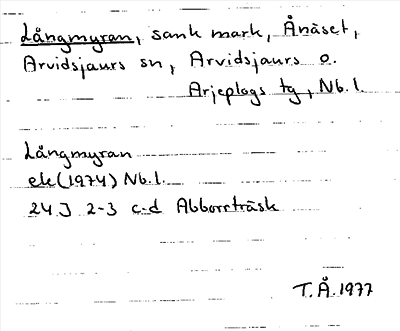 Långmyran, sank mark, Ånäset,
Arvidsjaurs sn, Arvidsjaurs o.
Arjeplogs tg, Nb. l.
Långmyran
ek (1974) Nb. l.
24J 2-3 c-d Abborrträsk
T.Å. 1977